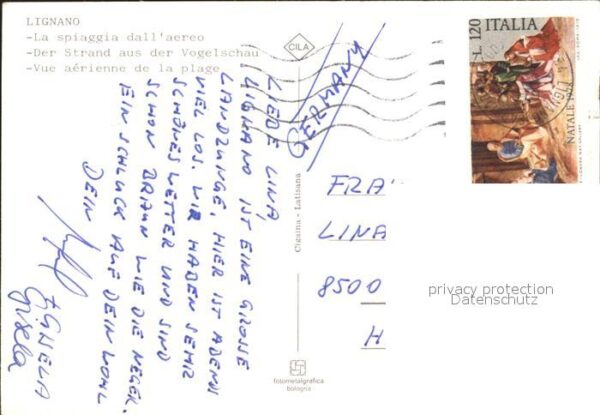 LIGNANO
-La spiaggia dall'aereo
-Der Strand aus der Vogelschau
-Vue aérienne de la plage
LIEBE LINA,
LIGNANO IST EINE GROSSE
LANDZUNGE. HIER IST ABENDS
VIEL LOS. WIR HABEN SEHR
SCHÖNES WETTER UND SIND
SCHON BRAUN WIE DIE NEGER.
EIN SCHLUCK AUF DEIN WOHL
DEIN
GISELA
CILA
GERMANY
Cigaina - Latisana
FRA
LINA
8500
H
fotometalgrafica
bologna
L. 120 ITALIA
NATALE
privacy protection
Datenschutz